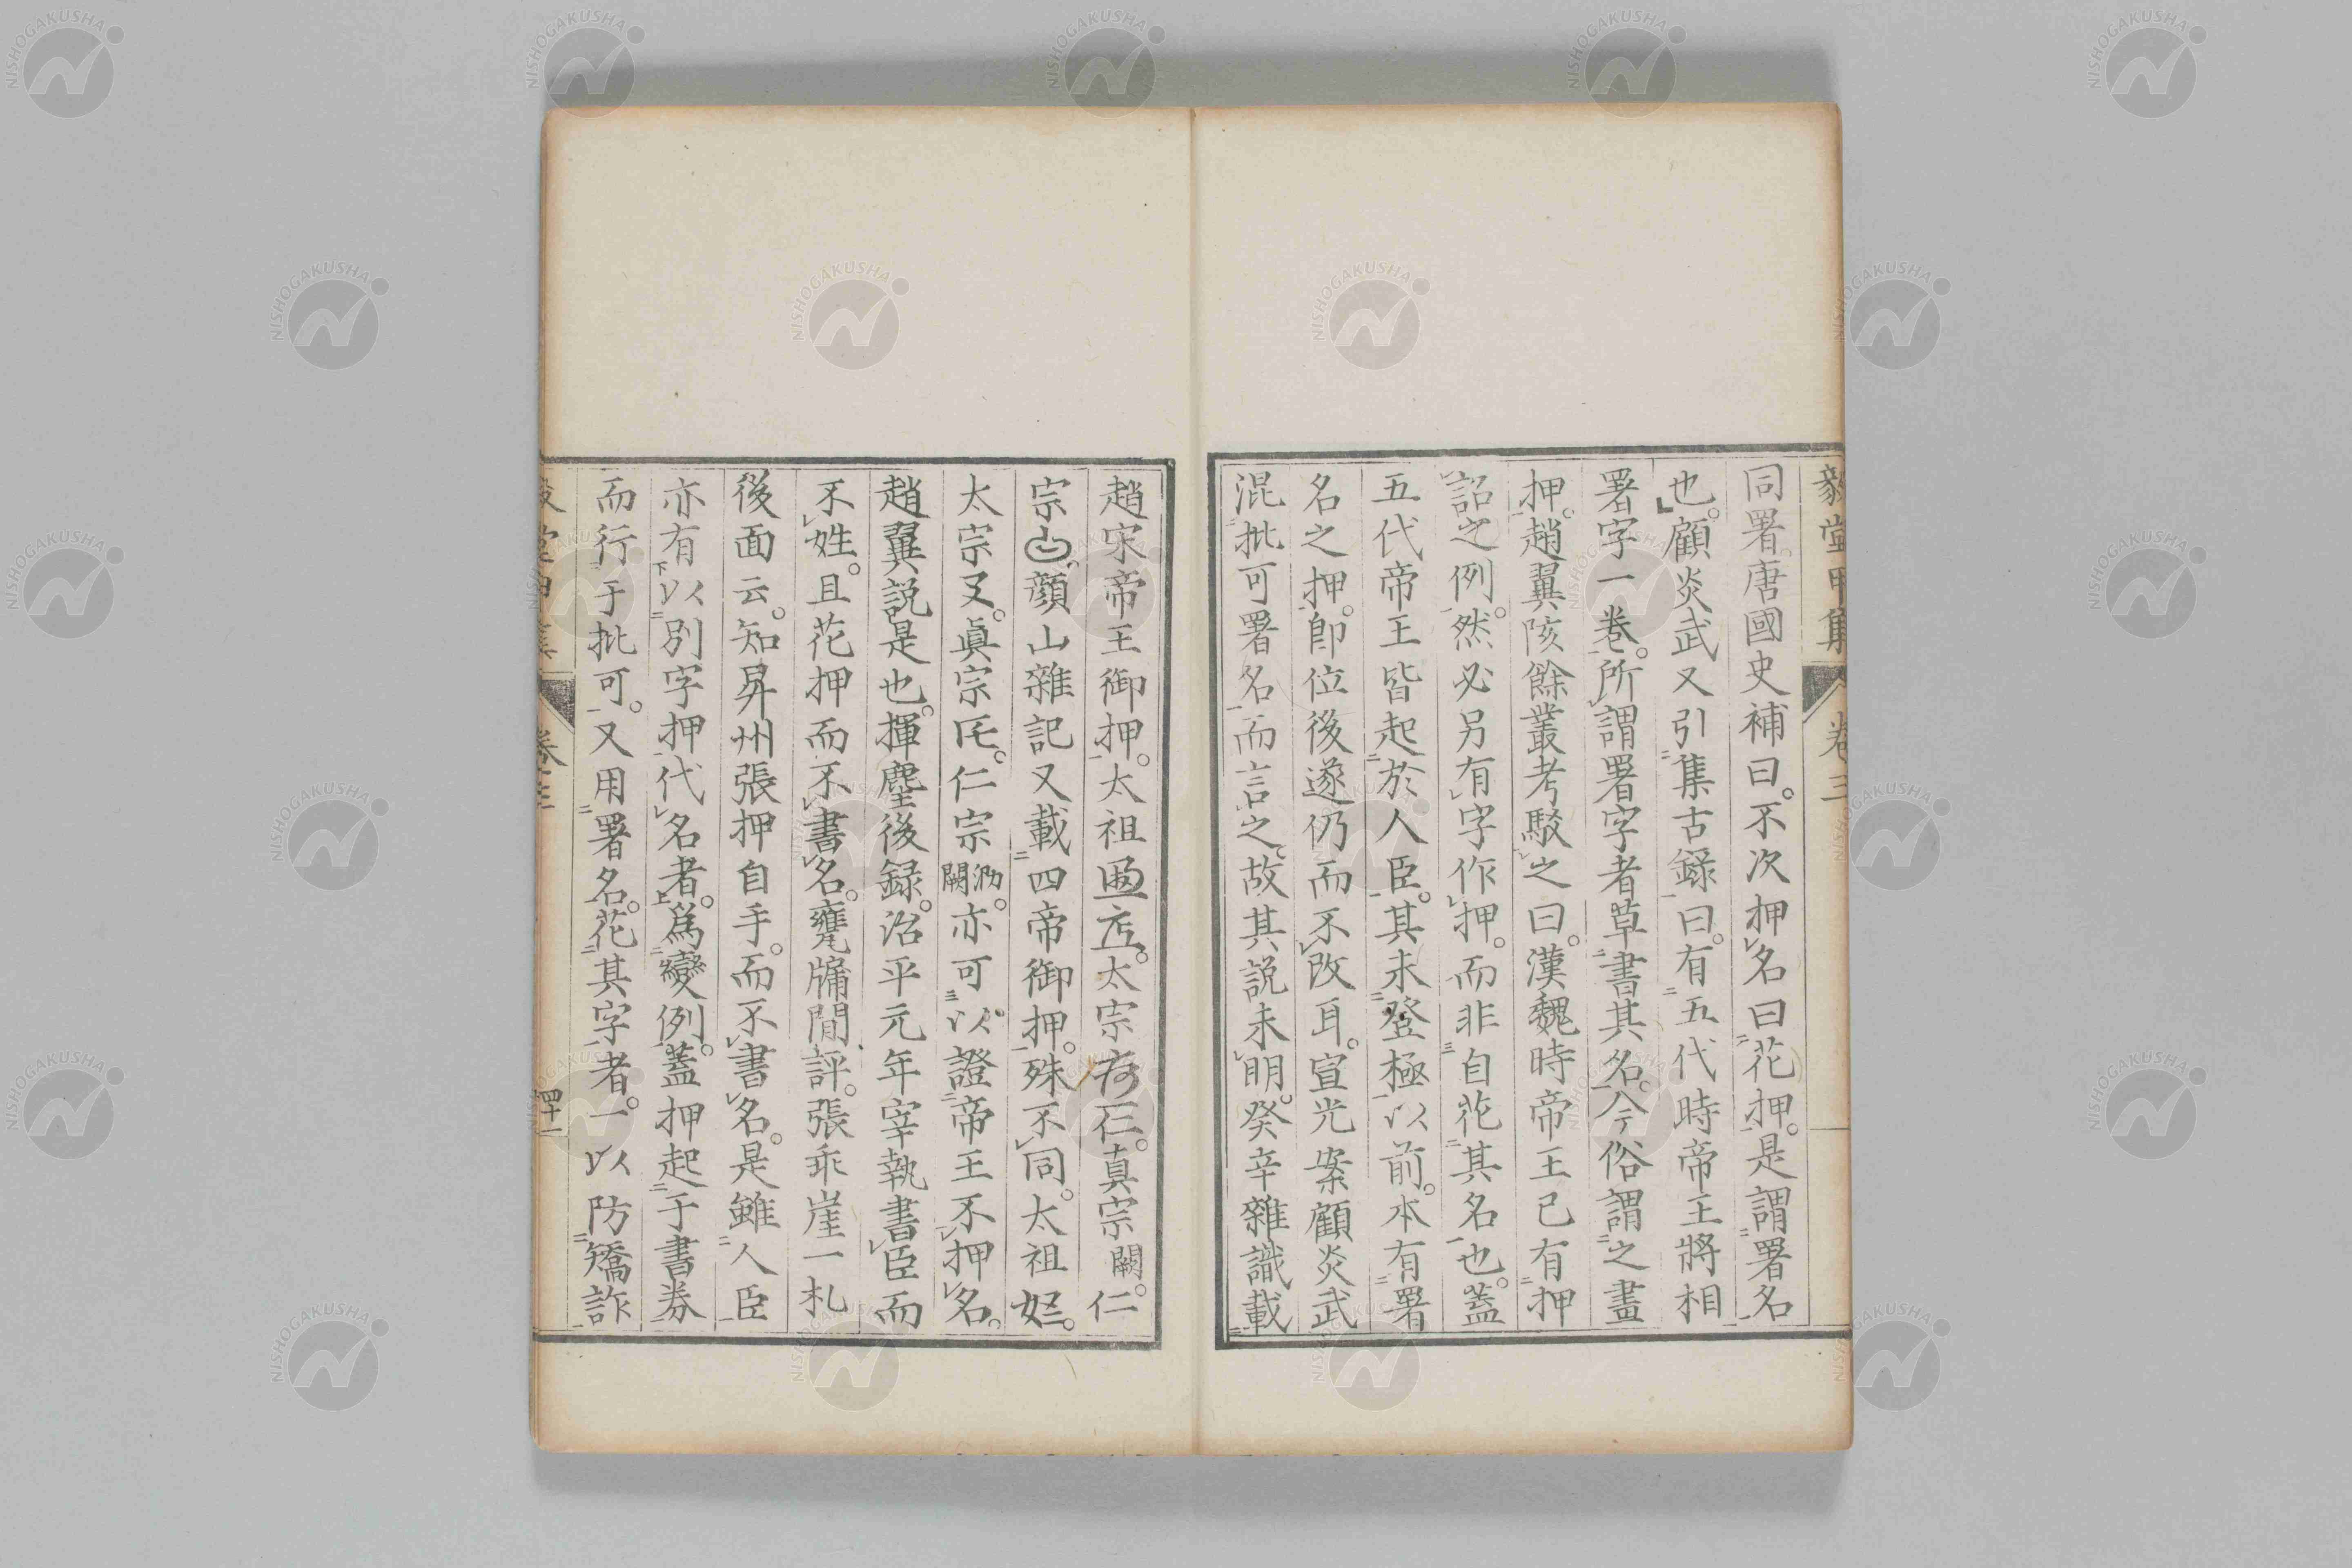 毅堂甲集 卷三
同署。唐國史補曰。不次押名曰花押。是謂署名
也。顧炎武又引集古錄曰。有五代時帝王將相
署字一卷。所謂署字者草書其名。今俗謂之畫
押。趙翼陔餘叢考駁之曰。漢魏時帝王已有押
詔之例。然必另有字作押。而非自花其名也。蓋
五代帝王皆起於人臣。其未登極以前。本有署
名之押。卽位後遂仍而不改耳。宣光案顧炎武
混批可署名而言之。故其説未明。癸辛雜識載
趙宋帝王御押。太祖 太宗 真宗闕。仁
宗 顔山雜記又載四帝御押。殊不同。太祖
太宗 眞宗 仁宗 闕。亦可以證帝王不押名。
趙翼説是也。揮麈後録。治平元年宰執書臣而
不姓。且花押而不書名。甕牖閒評。張乖崖一札
後面云。知昇州張押自手。而不書名。是雖人臣
亦有以別字押代名者。爲變例。蓋押起于書券
而行于批可。又用署名。花其字者。一以防矯詐
卷三
四十一
NISHOGAKUSHA